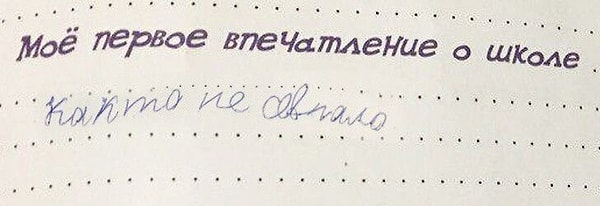 Моё первое впечатление о школе
как та не авпала